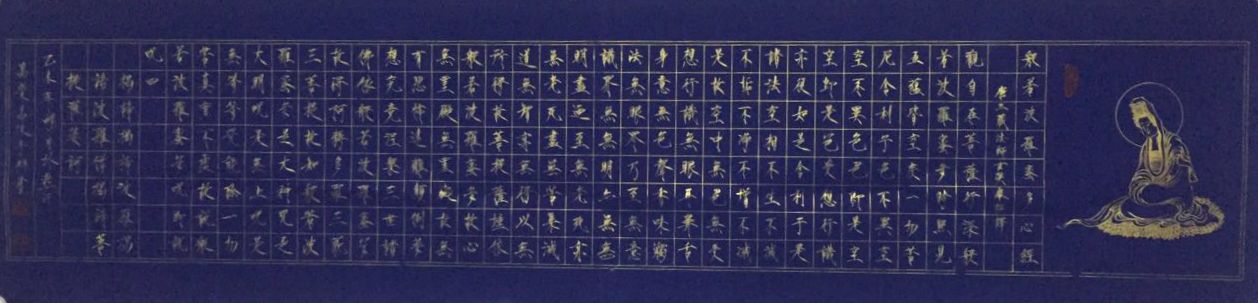 般若波羅蜜多心經
唐三藏法師玄奘奉詔譯
觀自在菩薩行深般
若波羅蜜多時照見
五蘊皆空度一切苦
厄舍利子色不異空
空不異色色即是空
空即是色受想行識
亦復如是舍利子是
諸法空相不生不滅
不垢不淨不增不減
是故空中無色無受
想行識無眼耳鼻舌
身意無色聲香味觸
法無眼界乃至無意
識界無無明亦無無
明盡迺至無老死亦
無老死盡無苦集滅
道無智亦無得以無
所得故菩提薩埵依
般若波羅蜜多故心
無罣礙無罣礙故無
有恐怖遠離顛倒夢
想究竟涅槃三世諸
佛依般若波羅蜜多
故得阿耨多羅三藐
三菩提故知般若波
羅蜜多是大神咒是
大明咒是無上咒是
無等等咒能除一切
苦真實不虛故說般
若波羅蜜多咒即說
咒曰
揭諦揭諦波羅揭
諦波羅僧揭諦菩
提薩婆訶
乙未年